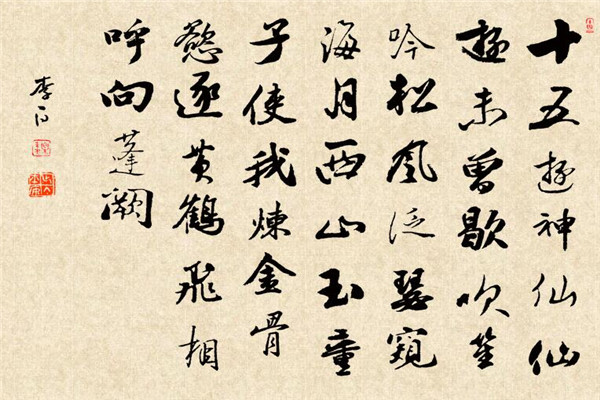 十五遊神仙仙
遊未曾歇吹笙
吟松风泛瑟窺
海月西山玉童
子使我煉金骨
慾逐黄鶴飛相
呼向蓬闕
李白